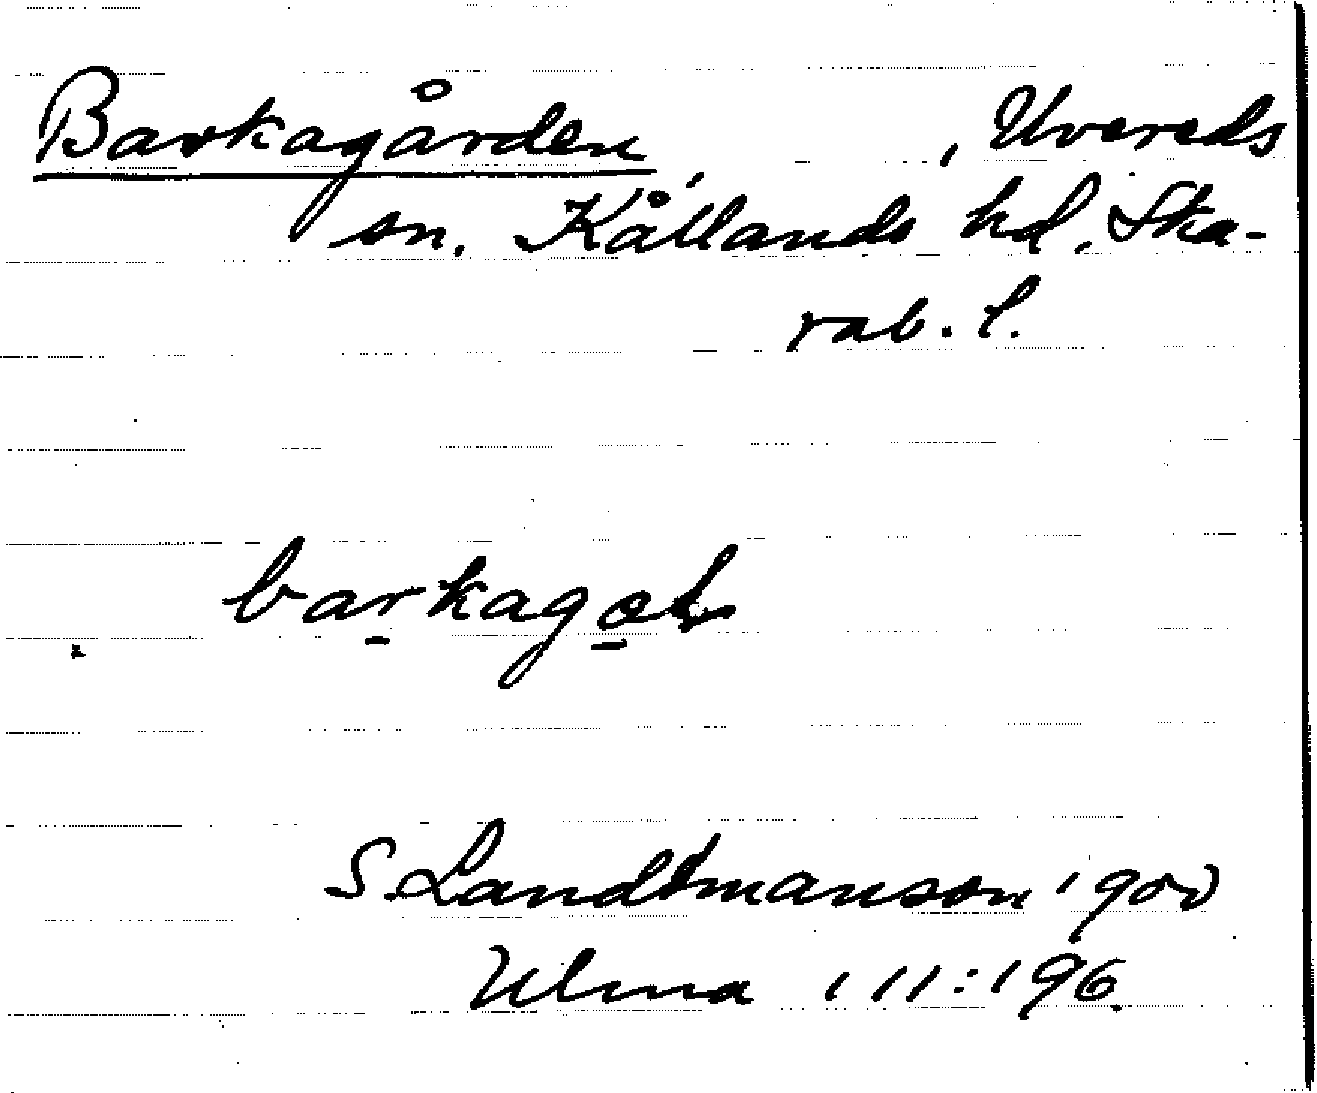 Barkagården, , Uvereds
sn. Kållands hd, Ska-
rab. l.
barkagoḷ
S. Landtmanson 1900
Ulma 111:196.